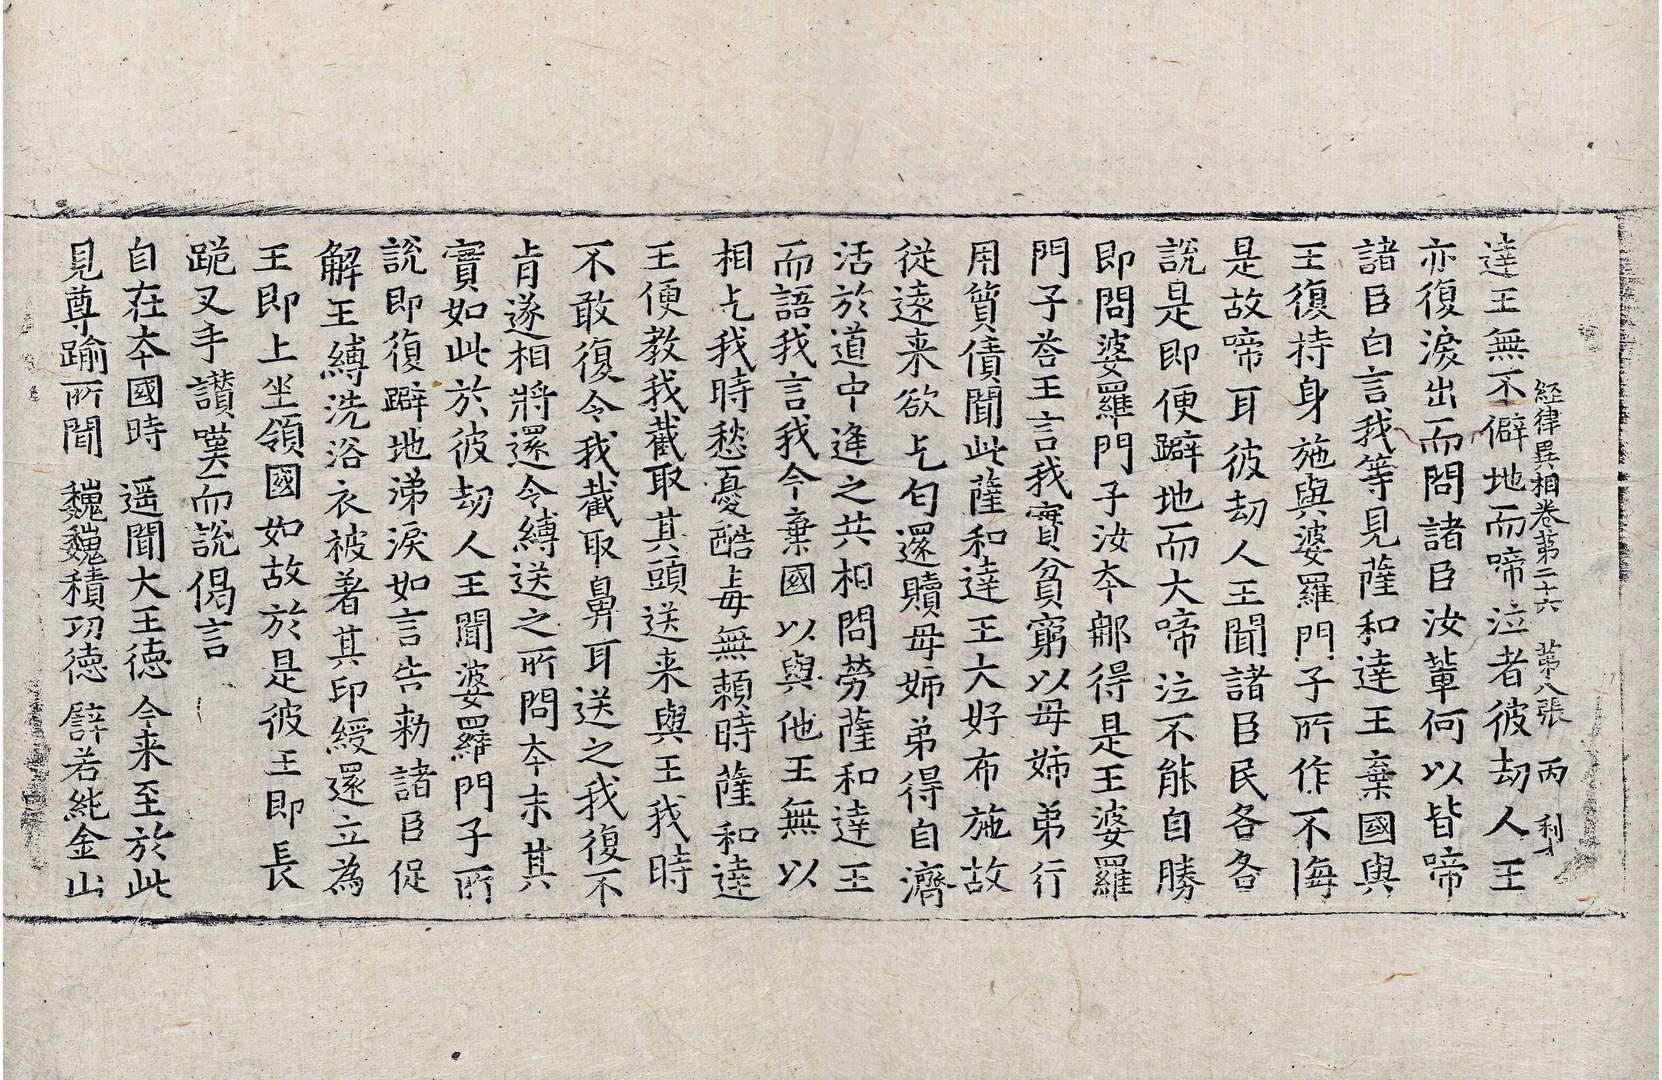 経律異相卷第二十六　第八張　丙　利
達王無不僻地而啼泣者彼劫人王
亦復淚出而問諸臣汝輩何以皆啼
諸臣白言我等見薩和達王棄國與
王復持身施與婆羅門子所作不悔
是故啼耳彼劫人王聞諸臣民各各
說是即便躃地而大啼泣不能自勝
即問婆羅門子汝本那得是王婆羅
門子荅王言我實貧窮以母姊弟行
用質債聞此薩和達王大好布施故
從遠来欲乞匃還贖母姊弟得自濟
活於道中逢之共相問勞薩和達王
而語我言我今棄國以與他王無以
相乞我時愁憂酷毒無賴時薩和達
王便教我截取其頭送来與王我時
不敢復令我截取鼻耳送之我復不
肯遂相將還令縛送之所問本末其
實如此於彼劫人王聞婆羅門子所
說即復躃地涕淚如言告勑諸臣促
解王縛洗浴衣被著其印綬還立為
王即上坐領國如故於是彼王即長
跪叉手讃嘆而說偈言
自在本國時　遥聞大王徳　今来至於此
見尊踰所聞　巍巍積功徳　譬若純金山